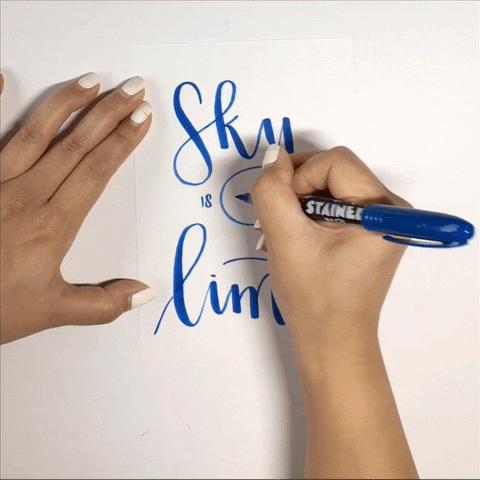 Sky
is
lim
STAINED